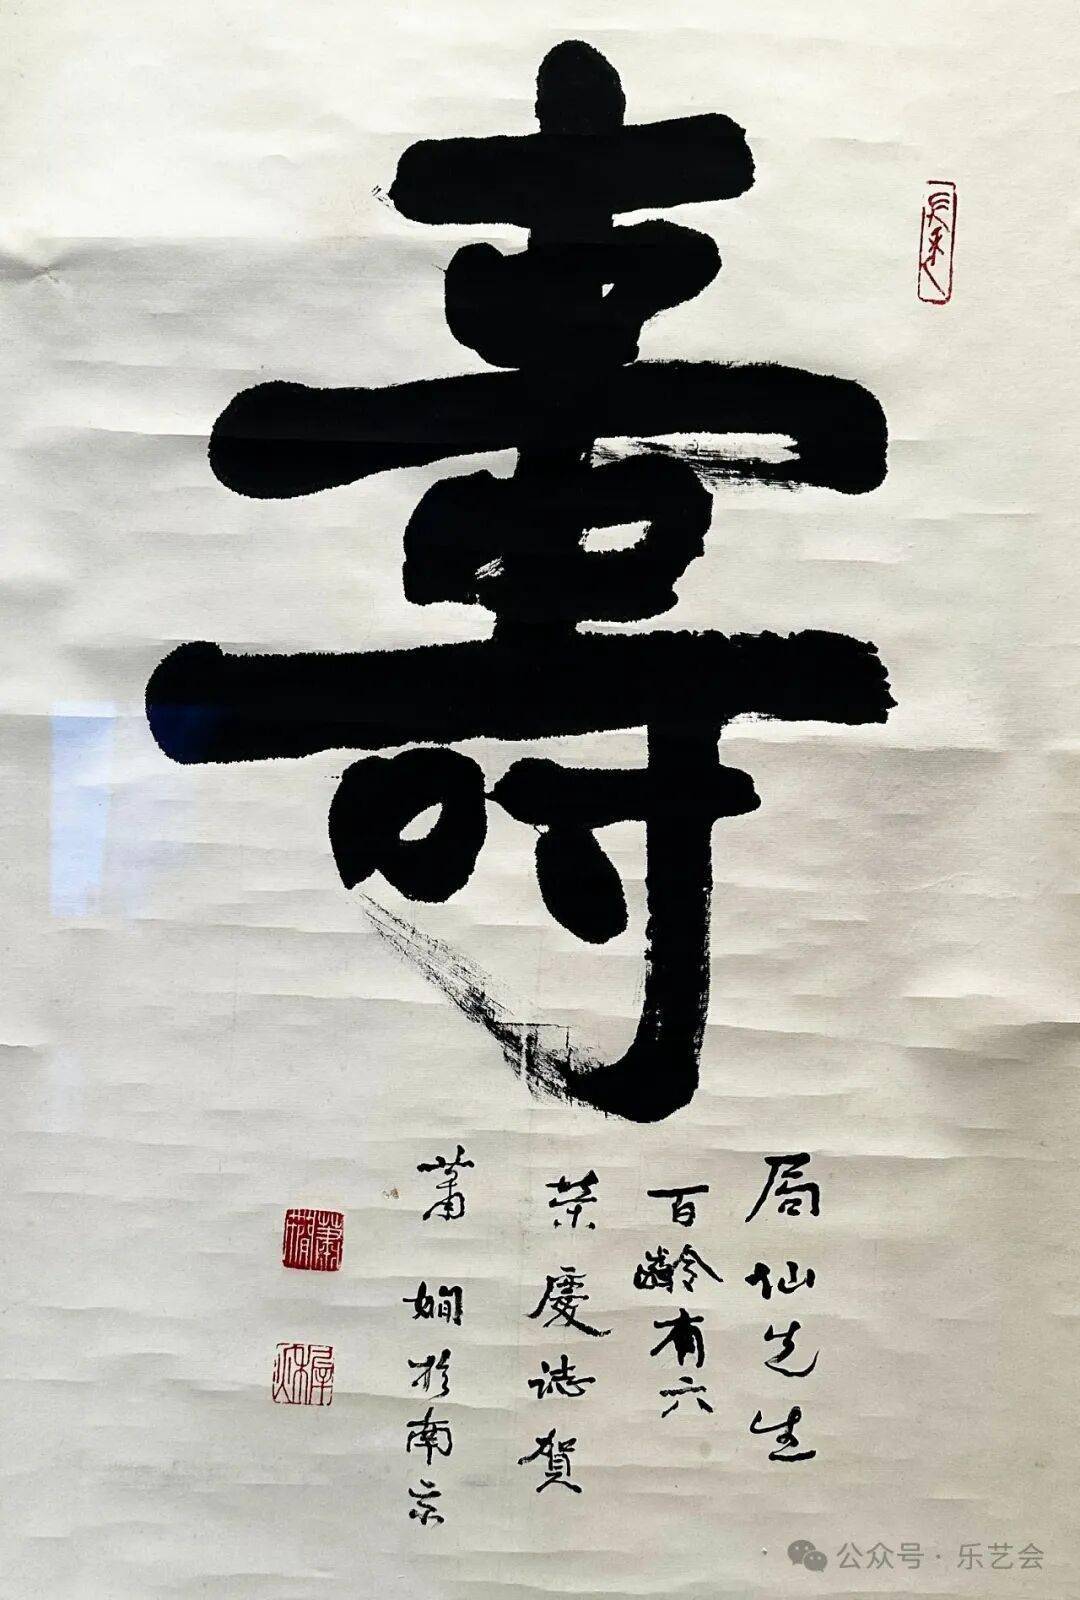 壽
局仙先生
百齡有六
榮慶誌賀
蕭嫻於南京
蕭嫻
公众号·乐艺会